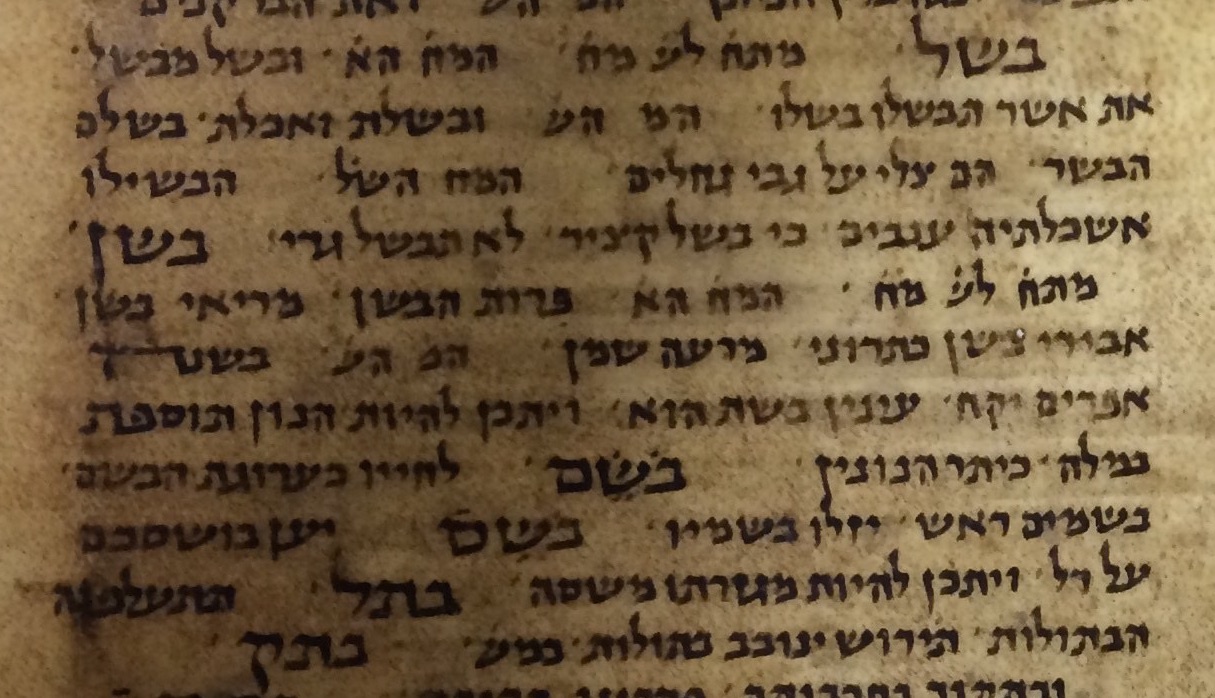 בשל מתח׳ לע׳ מח׳ המח׳ הא׳ ובשל מבשל׳
את אשר תבשלו בשלו׳ המ׳ הע׳ ובשלת ואכלת׳ בשלם
הבשר׳ הם צלי על גבי גחלים׳ המח׳ השל׳ הבשילו
אשכלתיה ענבים׳ כי בשל קציר׳ לא תבשל גדי׳ בשן׳
מתח׳ לע׳ מח׳ המח׳ הא׳ פרות הבשן׳ מריאי בשן
אבירי בשן כתרוני׳ מרעה שמן׳ המ׳ הע׳
אפרים יקח׳ ענין בשת הוא׳ ויתכן להיות הנון תוספת
במלה׳ כיתר הנונין׳ בשם׳ לחייו כערוגת הבשם׳
בשמים ראש׳ יזלו בשמיו׳ בשם יען בושסכם
על דל׳ ויתכן להיות מגזרתו משסה׳ בתל׳
הבתולות׳ תירוש ינובב בתולות׳ כמש׳ בתק׳